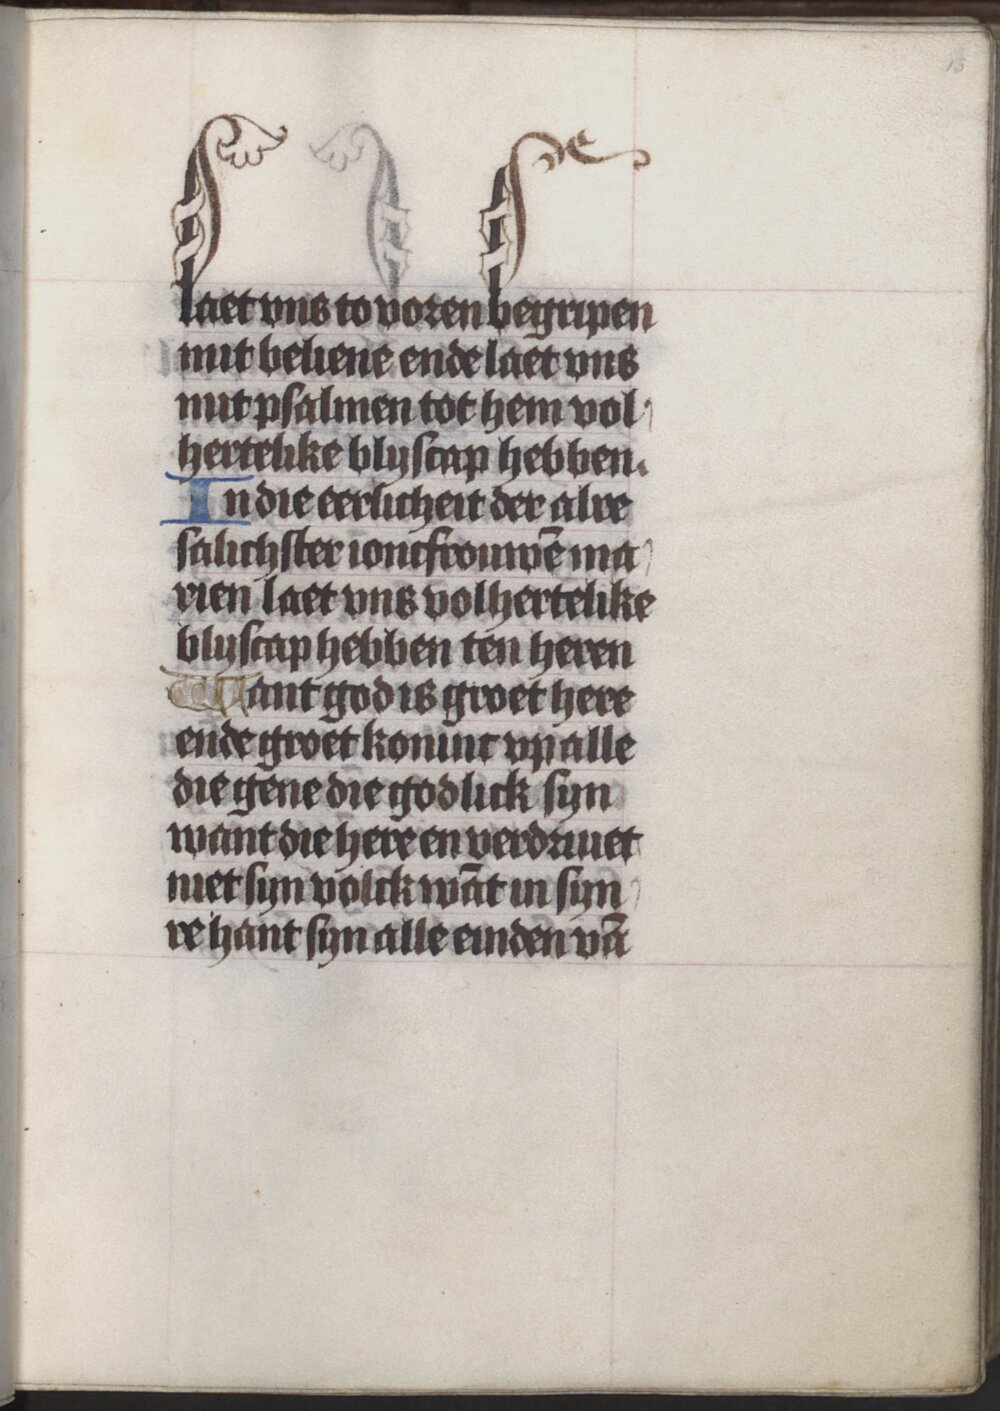 15
laet vns to voren begripen
mit beliene ende laet vns
mit psalmen tot hem vol
hertelike blyscap hebben.
In die eerlicheit der alre
salichster ioncfrouwē ma
rien laet vns volhertelike
blyscap hebben ten heren
Want god is groet here
ende groet konint vp alle
die gene die godlick syn
want die here en verdriuet
niet syn volck wāt in syn
re hant syn alle einden vā